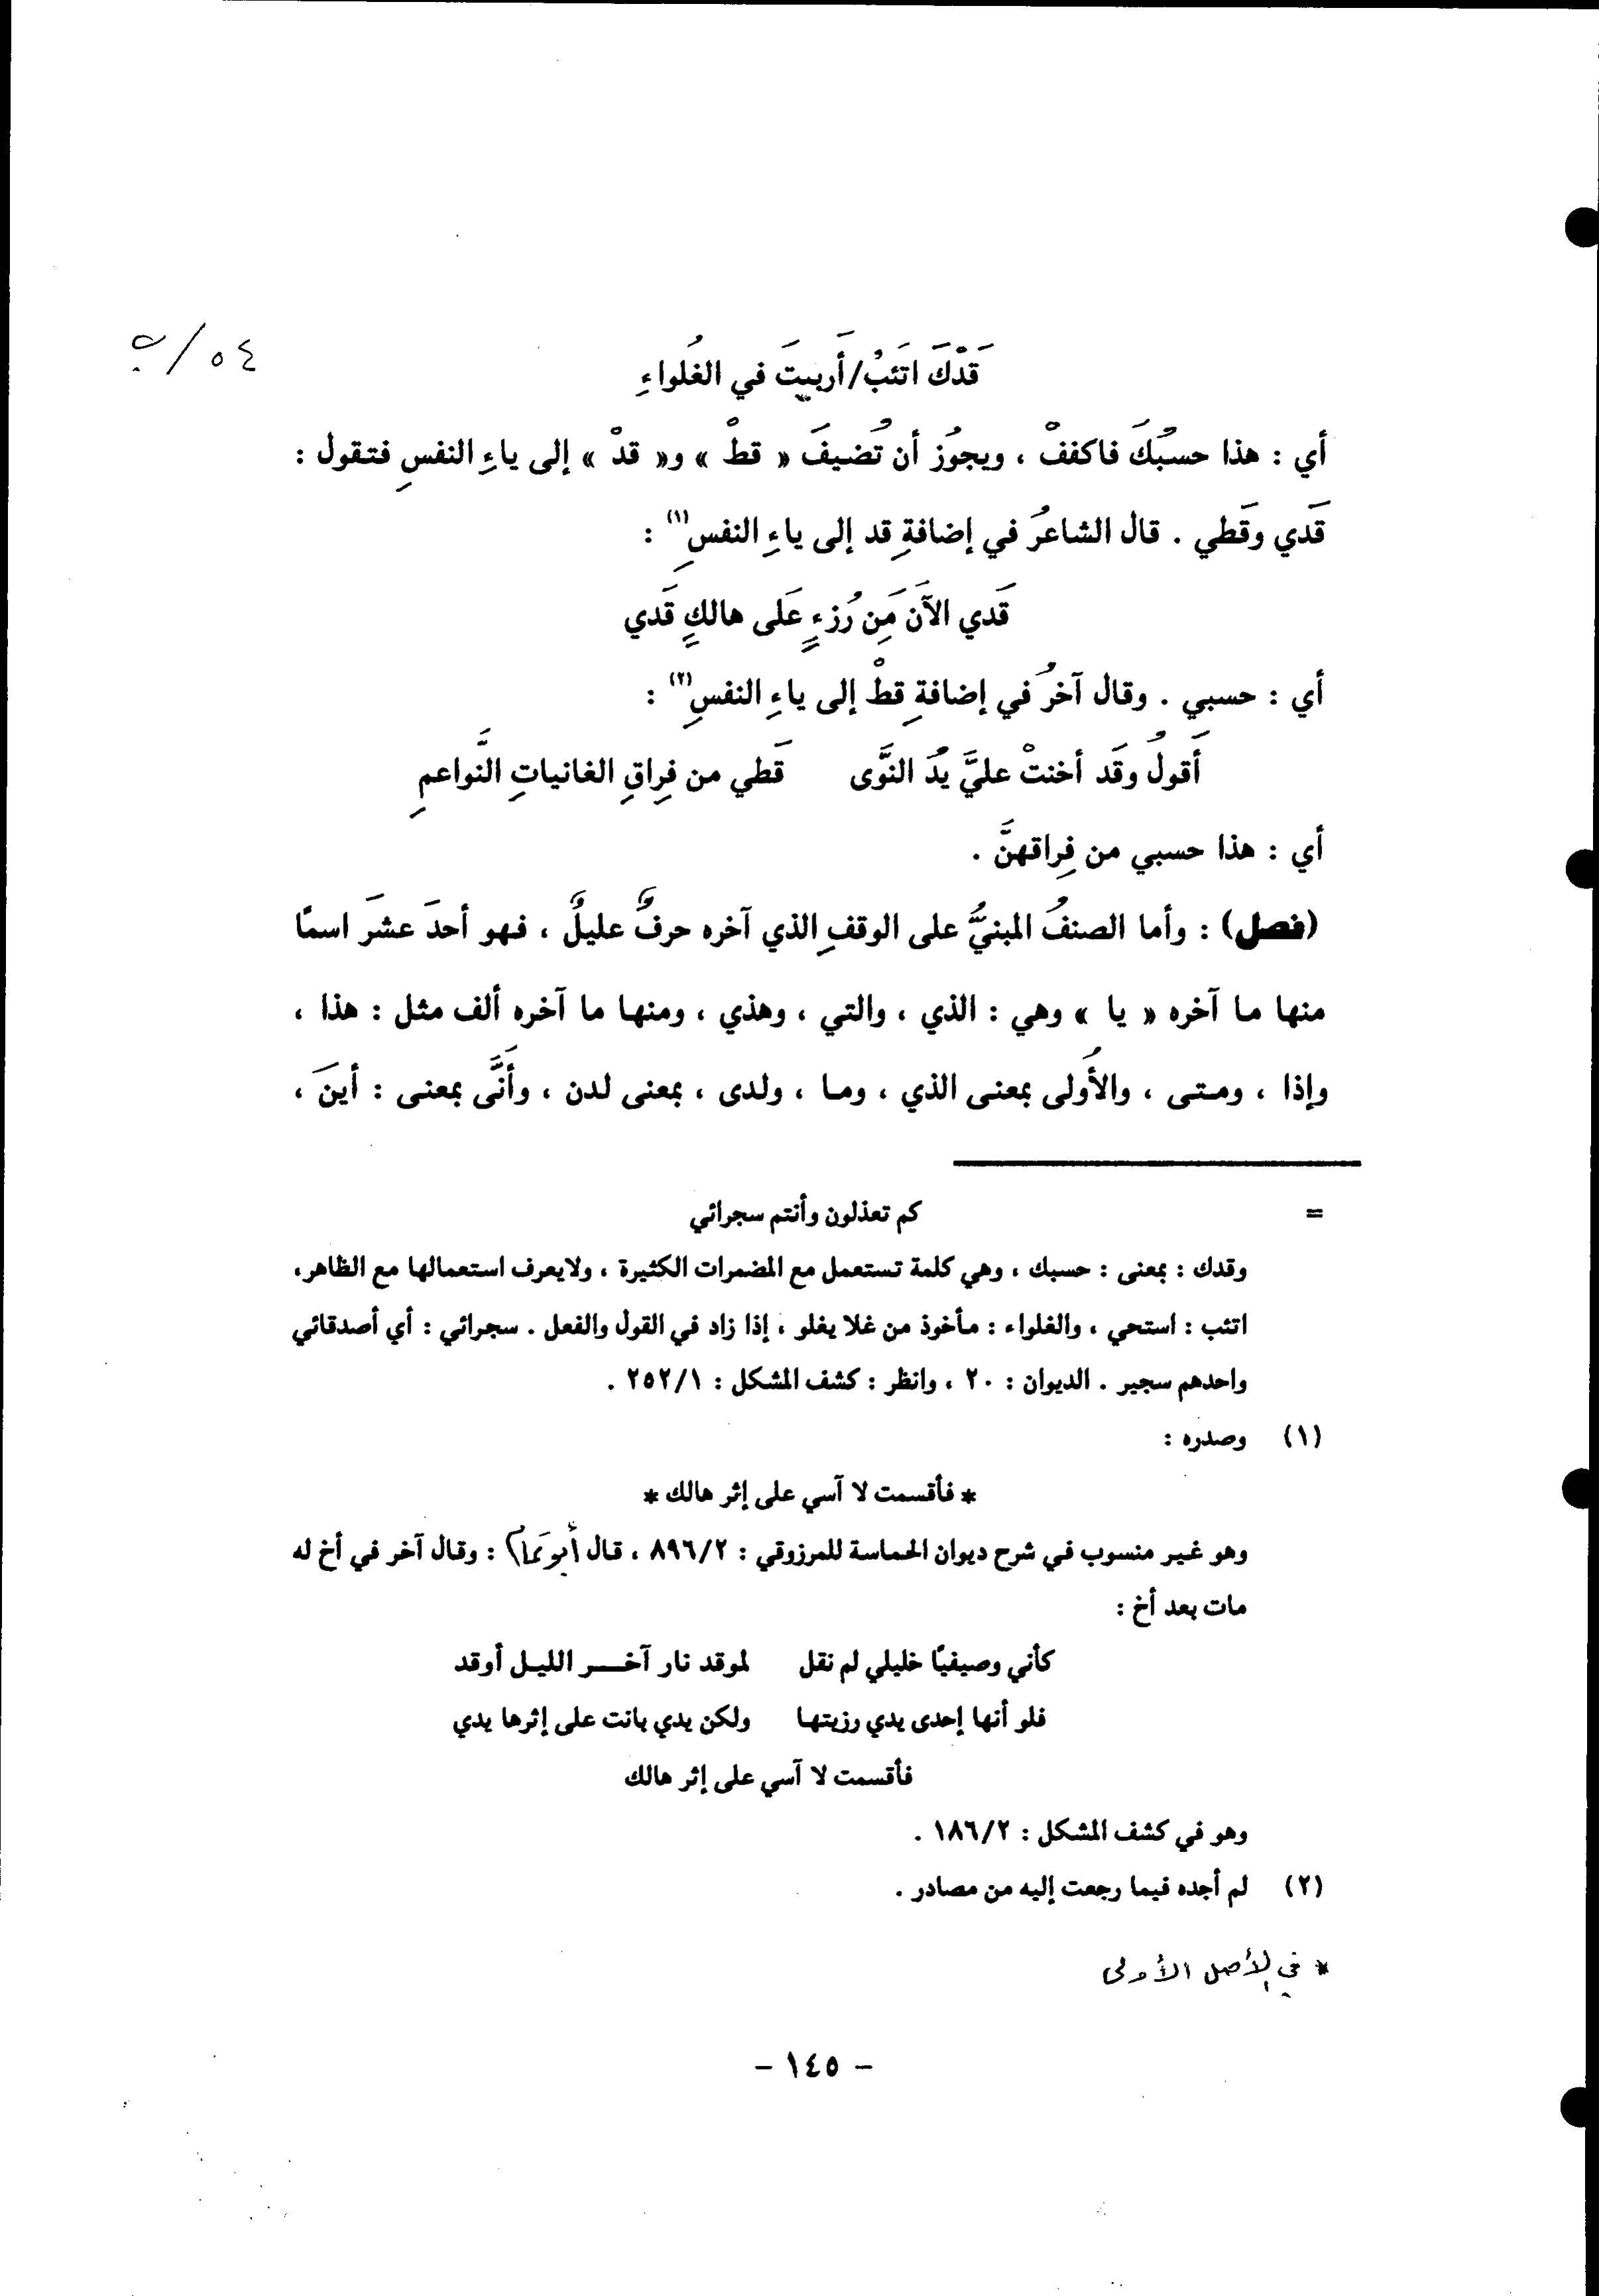 ٥٤/ب
قَدْكَ اتَئبْ/أَربيتَ في الغُلواءِ
أي : هذا حسبُكَ فاكففْ ، ويجوُز أن تُضيفَ « قطْ » و« قدْ » إلى ياءِ النفسِ فتقول :
قَدي وقَطي . قال الشاعرُ في إضافةِ قد إلى ياءِ النفسِ(١) :
قَدي الآنَ مَِن رُزءٍ عَلى هالكٍ قَدي
أي : حسبي . وقال آخرُ في إضافةِ قطْ إلى ياءِ النفسِ(٢) :
أَقولُ وقَد أخنتْ عليَّ يدُ النوَّى قَطي من فِراقِ الغانياتِ النَّواعمِ
أي : هذا حسبي من فِراقهنَّ .
(فصل) : وأما الصنفُ المبنيُّ على الوقفِ الذي آخره حرفٌ عليلٌ ، فهو أحدَ عشرَ اسمًا
منها ما آخره « يا » وهي : الذي ، والتي ، وهذي ، ومنها ما آخره ألف مثل : هذا ،
وإذا ، ومتى ، والأُولى بمعنى الذي ، وما ، ولدى ، بمعنى لدن ، وأَنَّى بمعنى : أينَ ،
= كم تعذلون وأنتم سجرائي
وقدك : بمعنى : حسبك ، وهي كلمة تستعمل مع المضمرات الكثيرة ، ولايعرف استعمالها مع الظاهر،
اتئب : استحي ، والغلواء : مأخوذ من غلا يغلو ، إذا زاد في القول والفعل . سجرائي : أي أصدقائي
واحدهم سجير . الديوان : ٢٠ ، وانظر : كشف المشكل : ٢٥٢/١ .
(١) وصدره :
* فأقسمت لا آسي على إثر هالك *
وهو غير منسوب في شرح ديوان الحماسة للمرزوقي : ٨٩٦/٢ ، قال أبو تمام : وقال آخر في أخ له
مات بعد أخ :
كأني وصيفيًا خليلي لم نقل لموقد نار آخر الليل أوقد
فلو أنها إحدى يدي رزيتها ولكن يدي بانت على إثرها يدي
فأقسمت لا آسي على إثر هالك
وهو في كشف المشكل : ١٨٦/٢ .
(٢) لم أجده فيما رجعت إليه من مصادر .
* في الأصل الأولى
- ١٤٥ -